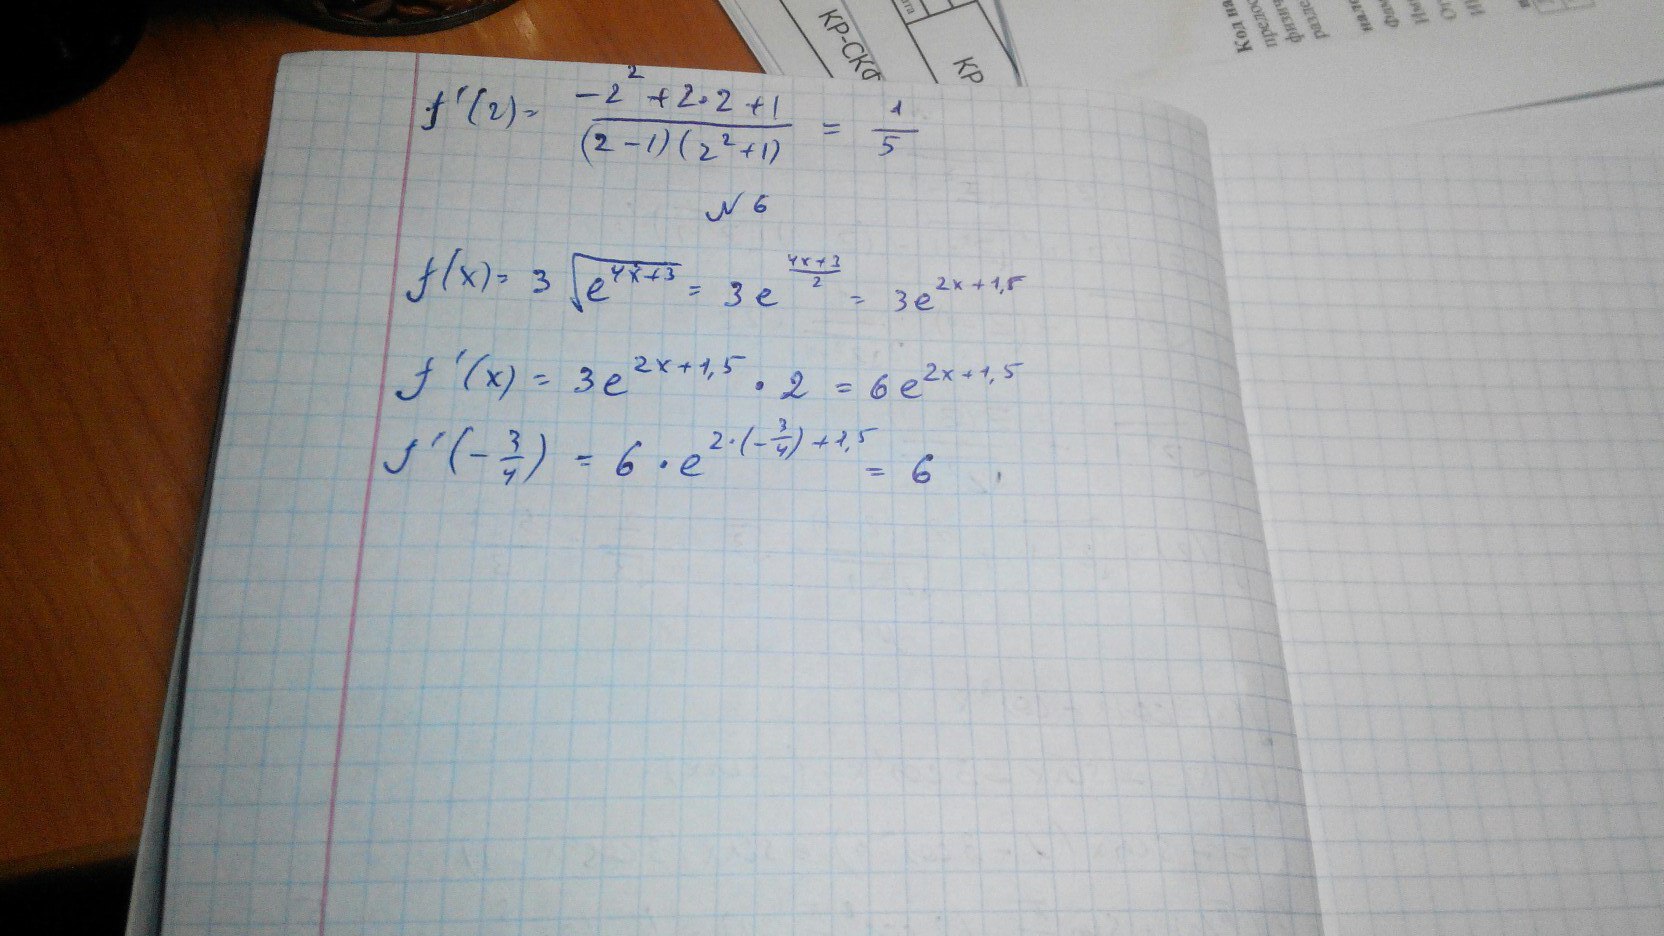 КР-СКФ
КР
Код на
f'(2) = \frac{-2^2+2·2+1}{(2-1)(2^2+1)} = \frac{1}{5}
N 6
f(x) = 3 \sqrt{e^{4x+3}} = 3e^{\frac{4x+3}{2}} = 3e^{2x+1,5}
f'(x) = 3e^{2x+1,5} · 2 = 6e^{2x+1,5}
f'(-\frac{3}{4}) = 6 · e^{2·(-\frac{3}{4})+1,5} = 6